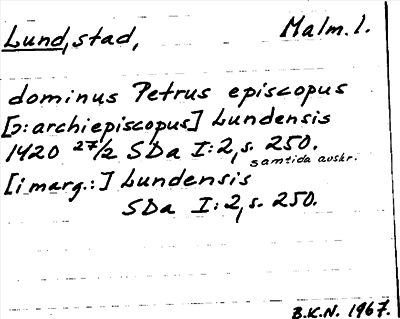 Lund, stad, Malm. l.
dominus Petrus episcopus
[ɔ: archiepiscopus] Lundensis
1420 27/2 SDa I:2, s. 250.
samtida avskr.
[i marg.:] Lundensis
SDa I:2, s. 250.
B.K.N. 1967.